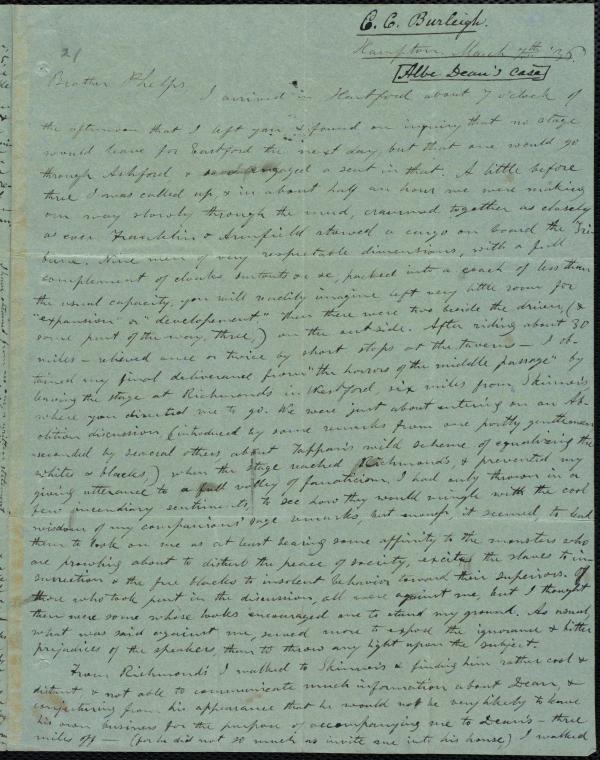 C. C. Burleigh.
Hampton, March 7th '36
[Albe Dean's case]
21
Brother Phelps
I arrived in Hartford about 7 o'clock of
the afternoon that I left you & found on inquiry that no stage
would leave for Eastford the next day, but that one would go
through Ashford & so engaged a seat in that. A little before
three I was called up, & in about half an hour we were making
our way slowly through the mud, crammed together as closely
as ever Franklin & Armfield stowed a cargo on board the Tri-
bune. Nine men of very respectable dimensions, with a full
complement of cloaks surtouts &c &c, packed into a coach of less than
the usual capacity, you will readily imagine left very little room for
"expansion" or "developement" then there were two beside the driver, (&
some part of the way, three,) on the outside. After riding about 30
miles – relieved once or twice by short stops at the taverns – I ob-
tained my final deliverance from "the horrors of the middle passage" by
leaving the stage at Richmonds in Westford, six miles from Skinners,
where you directed me to go. We were just about entering on an Ab-
olition discussion (introduced by some remarks from one portly gentleman
seconded by several others about Tappan's mild scheme of equalizing the
whites & blacks,) when the stage reached Richmond's, & prevented my
giving utterance to a full volley of fanaticism. I had only thrown in a
few incendiary sentiments, to see how they would mingle with the cool
wisdom of my companions' sage remarks, but enough, it seemed to lead
them to look on me as at least bearing some affinity to the monsters who
are prowling about to disturb the peace of society, excite the slaves to in-
surrection & the free blacks to insolent behavior toward their superiors. Of
those who took part in the discussion, all were against me, but I thought
there were some whose looks encouraged me to stand my ground. As usual
what was said against me, served more to expose the ignorance & bitter
prejudices of the speakers, than to throw any light upon the subject.
From Richmond's I walked to Skinner's & finding him rather cool &
distant & not able to communicate much information about Dean, &
conjecturing from his appearance that he would not be very likely to leave
his own business for the purpose of accompanying me to Dean's – three
miles off – (for he did not so much as invite me into his house) I walked